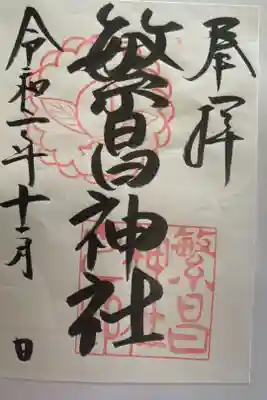 奉拝
繁昌神社
令和二年十一月 日
繁昌
神社